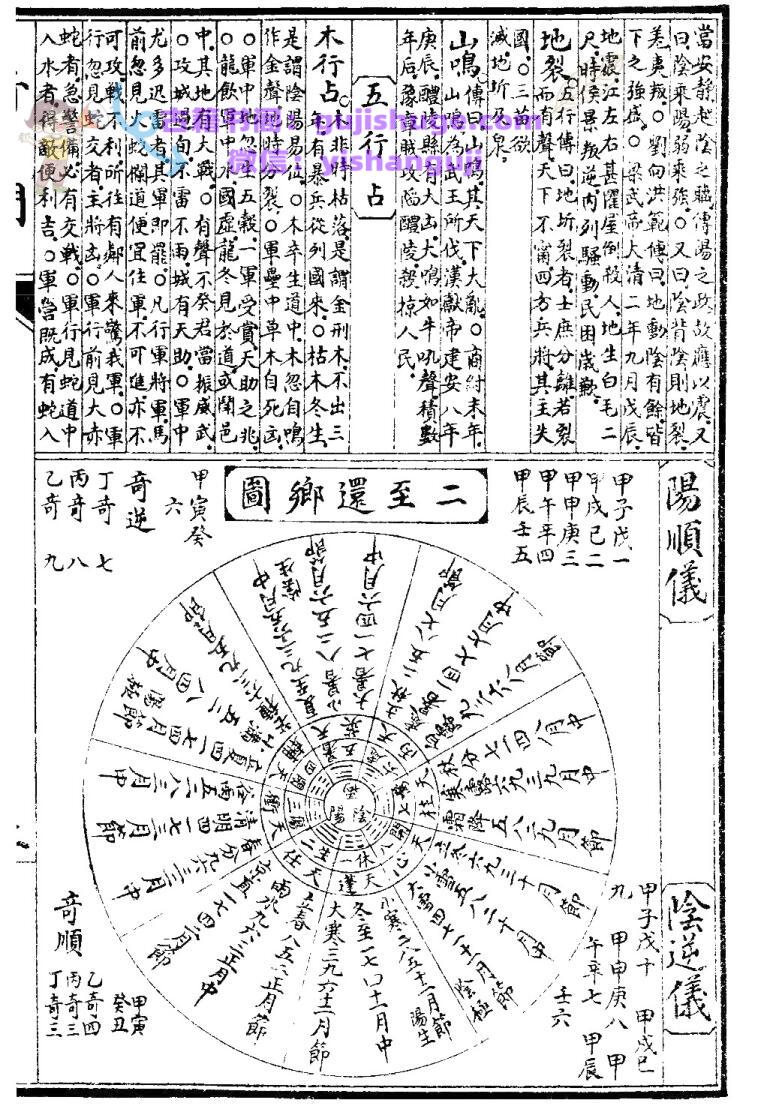 當安靜越陰之職傳陽之政故應以震又
曰陰乘陽弱乘強○又曰陰背陰則地裂
羌夷叛○劉向洪範傳曰地動陰有餘皆
下之強盛○梁武帝大清二年九月戊辰
地震江左右甚壞屋倒殺人地生白毛二
尺時侯景叛逆內列騷動民困歲歉
地裂 五行傳曰地坼裂者士庶分離若裂
而有聲天下不寗四方兵將其主失
國○三苗欲
滅地坼及泉
山鳴 傳曰山鳴其天下大亂○商紂末年
山鳴為武王所伐漢獻帝建安八年
庚辰醴陵縣有大山大鳴如牛吼聲積數
年后豫章賊攻陷醴陵殺掠人民
五行占
木行占 ○木非時枯落是謂金刑木不出三
年有暴兵從列國來○枯木冬生
是謂陰陽易位○木卒生道中木忽自鳴
作金聲地時分裂○軍壘中草木自死凶
○軍中地忽生五穀一軍受賞天助之兆
○龍飲軍中水國虛龍冬見於道或鬧邑
中其地有大戰○有聲不癸君當振威武
○攻城過旬不雷不雨城有天助○軍中
尤多迅雷者其軍即罷○凡行軍將軍馬
前忽見火蛇欄道便宜住軍不可進亦不
可攻戰不利所往有鄰人來驚我軍○軍
行忽見蛇交者主將凶○軍行前見大赤
蛇者急警備必有交戰○軍行見蛇道中
入水者得敵便利吉○軍營既成有蛇入
古籍书阁：gujishuge.com
微信：yishanguji
陽順儀
甲子戊一
甲戌己二
甲申庚三
甲午辛四
甲辰壬五
二至還鄉圖
甲寅癸
六
奇逆
丁奇 七
丙奇 八
乙奇 九
冬至一七○十一月中
大寒三九六十二月節
小寒二八五十二月節
陽生
立春八五二正月節
雨水九六三正月中
驚直一七四二月節
春分九六三二月中
清明四一七三月節
谷雨五二八三月中
立夏四一七四月節
陽極
陰生
秋分七一四八月中
寒露六九三九月中
霜降五八二九月節
小雪五八二十月中
大雪四七一十一月節
陰極
天蓬
休一
天任
生二
天衝
天輔
天英
天柱
天心
陰
陽
陰逆儀
甲子戊十
九
甲戌己
甲申庚八
甲
午辛七
甲辰
壬六
奇順
甲寅
癸丑
乙奇四
丙奇三
丁奇三